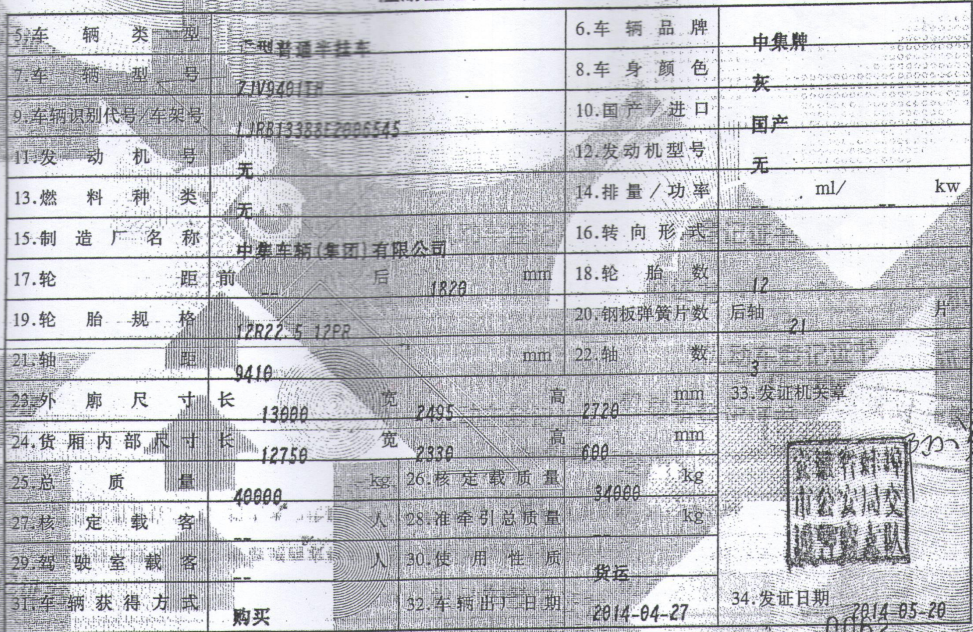 5.车辆类型 重型普通半挂车 6.车辆品牌 中集牌
7.车辆型号 8.车身颜色 灰
9.车辆识别代号/车架号 10.国产/进口 国产
11.发动机号 无 12.发动机型号 无
13.燃料种类 无 14.排量/功率 -- ml/ -- kw
15.制造厂名称 中集车辆(集团)有限公司 16.转向形式
17.轮距 前 -- 后 1820 mm 18.轮胎数 12
19.轮胎规格 12R22.5 12PR 20.钢板弹簧片数 后轴 21 片
21.轴距 9410 -- mm 22.轴数 3
23.外廓尺寸 长 13000 宽 2495 高 2720 mm 33.发证机关章
24.货厢内部尺寸 长 12750 宽 2330 高 600 mm
25.总质量 40000 kg 26.核定载质量 34000 kg
27.核定载客 -- 人 28.准牵引总质量 -- kg
29.驾驶室载客 -- 人 30.使用性质 货运
31.车辆获得方式 购买 32.车辆出厂日期 2014-04-27 34.发证日期 2014-05-20